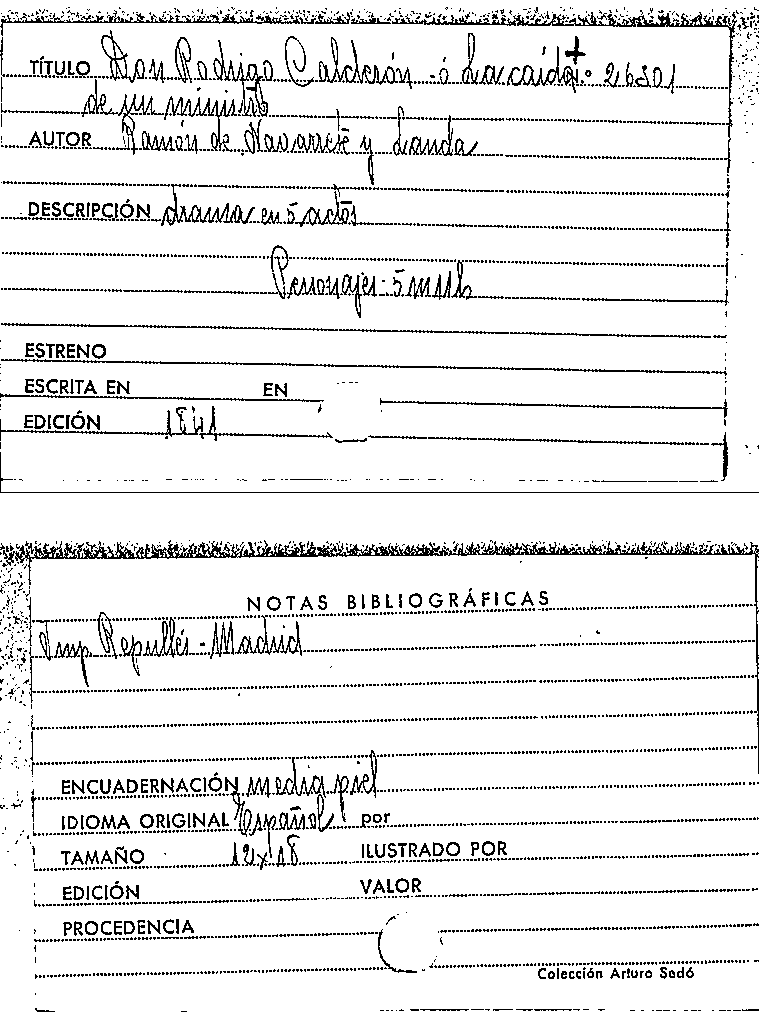 TÍTULO Don Rodrigo Calderón - ó La caída 26801
de un ministro
AUTOR Ramón de Navarrete y Landa
DESCRIPCIÓN drama en 5 actos
Personajes - 5
ESTRENO
ESCRITA EN EN
EDICIÓN 1841
NOTAS BIBLIOGRÁFICAS
Imp Repullés - Madrid
ENCUADERNACIÓN media piel
IDIOMA ORIGINAL Español por
TAMAÑO 12x18 ILUSTRADO POR
EDICIÓN VALOR
PROCEDENCIA
Colección Arturo Sedó